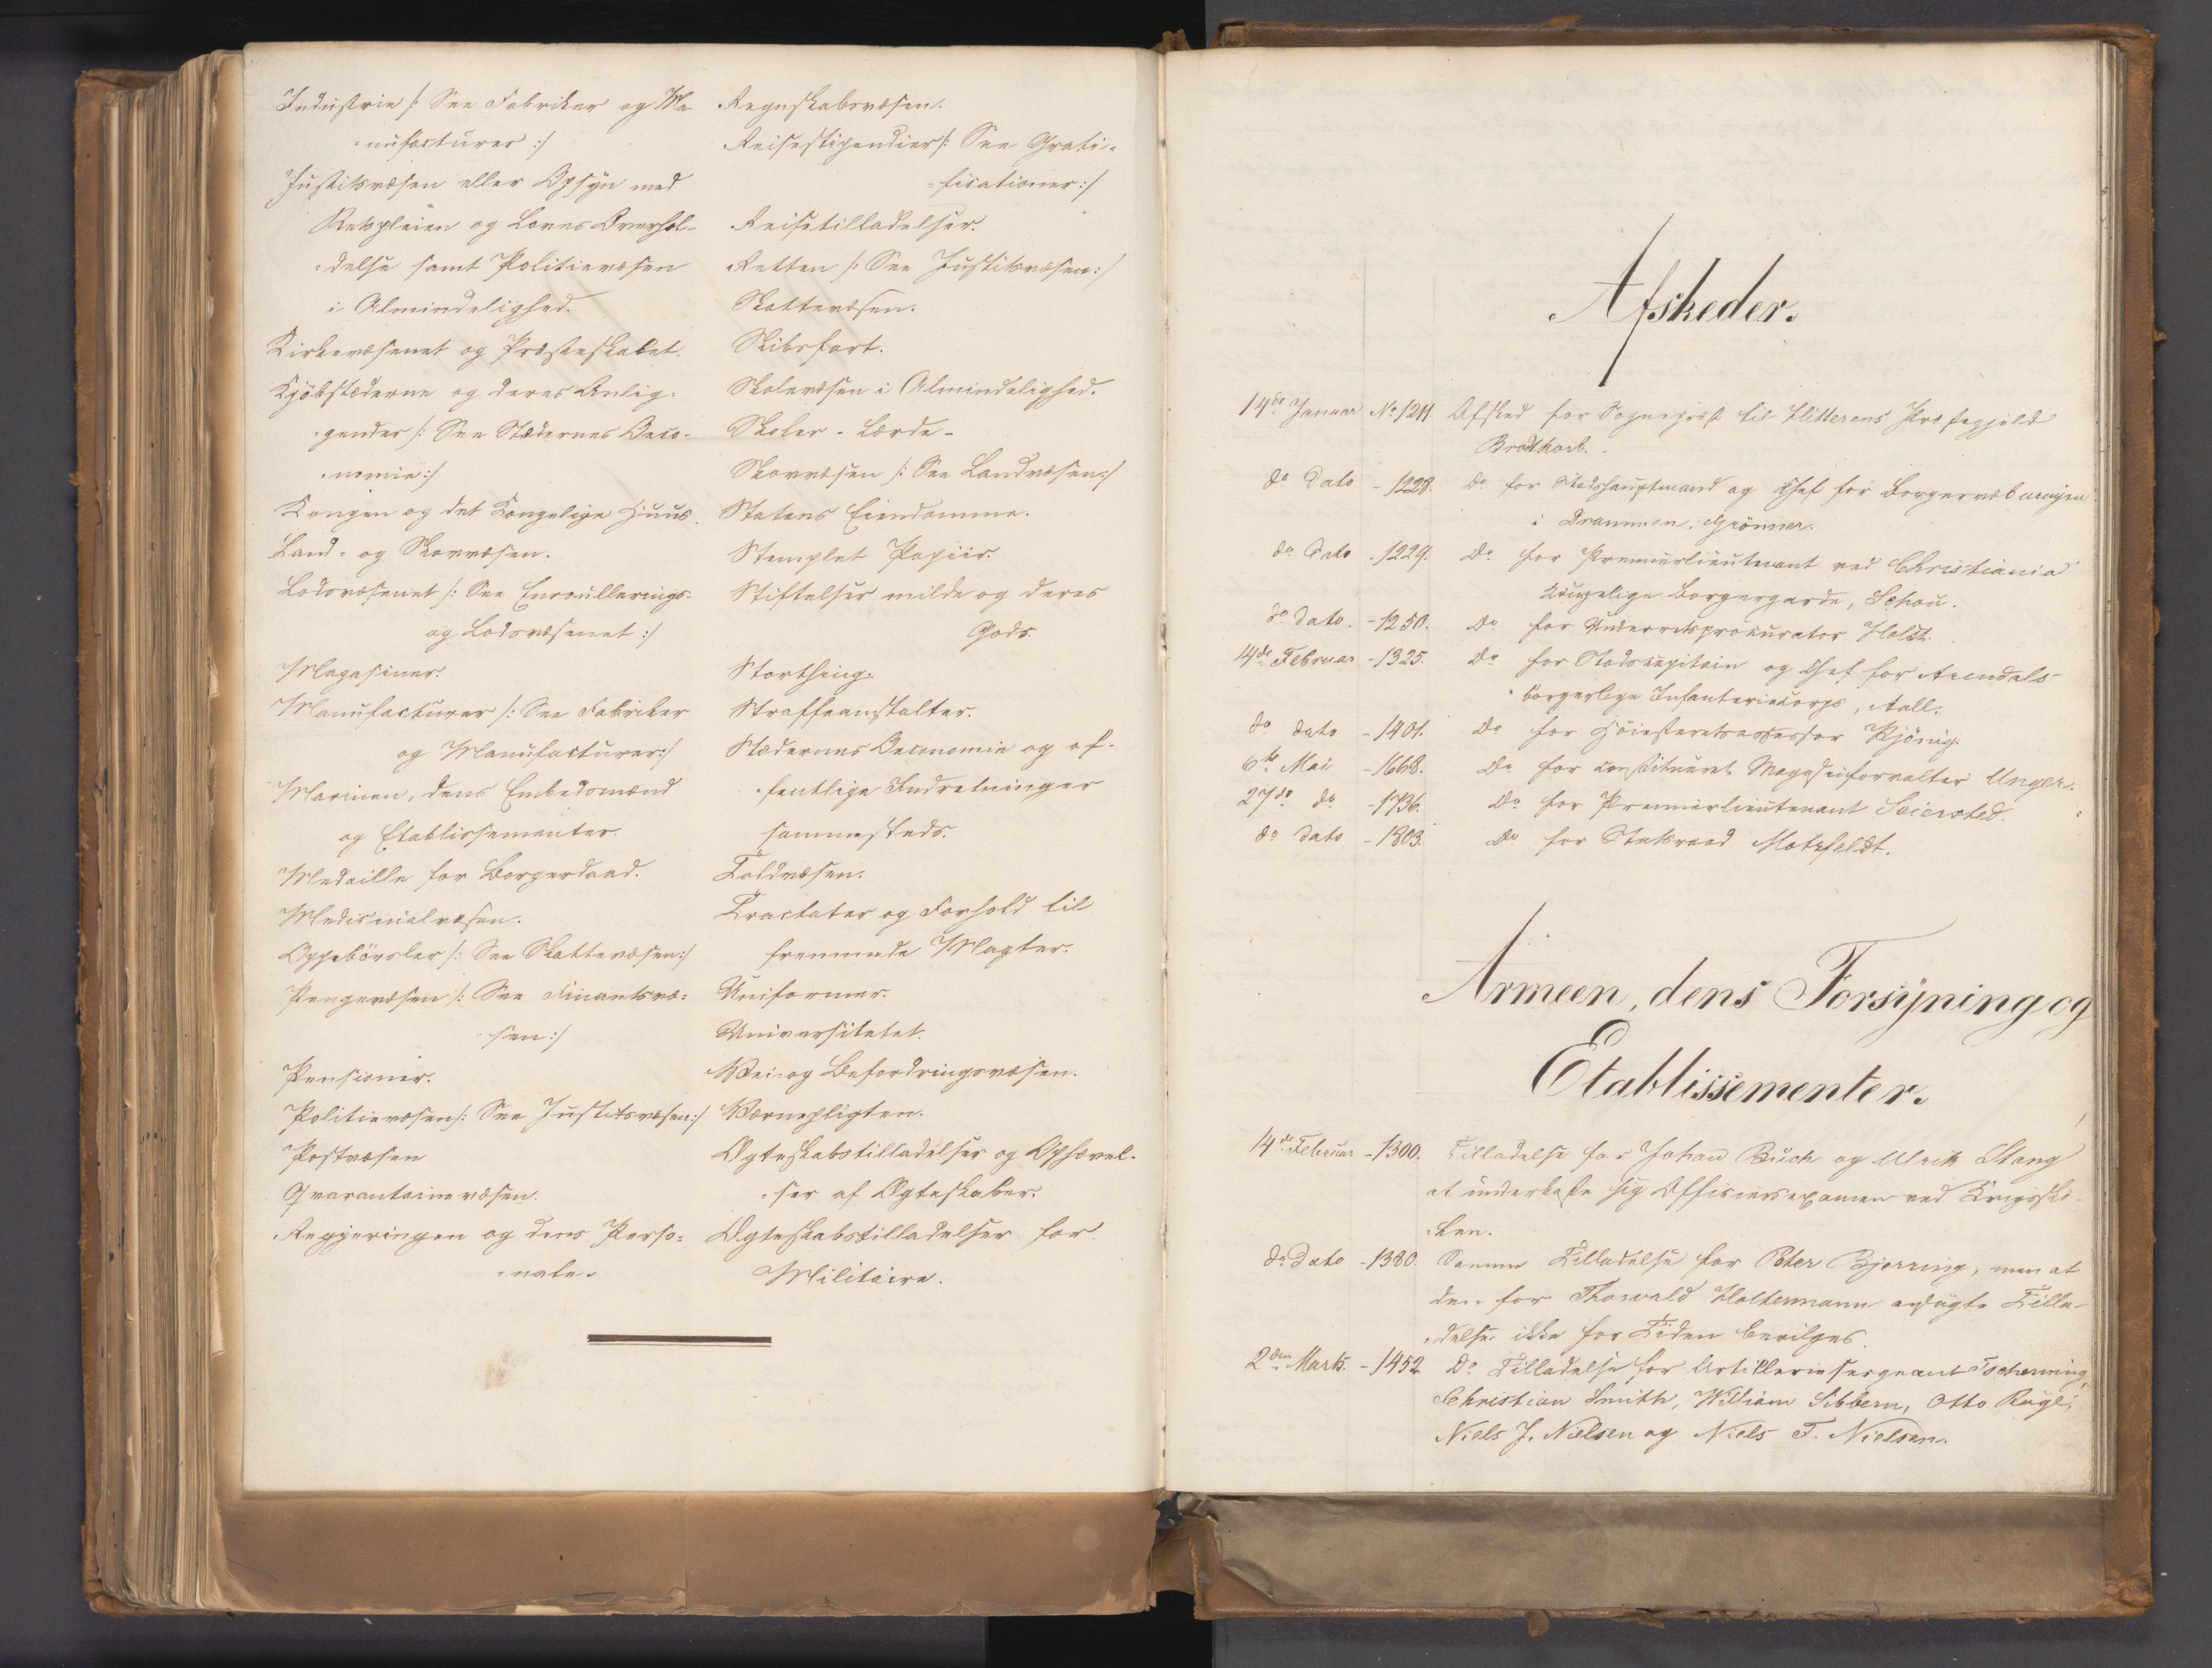 Industrie /: See Fabriker og Ma-
nufacturer :/
Justitsvæsen eller Opsyn med
Retspleien og Loves Overhol-
delse samt Politievæsen
i Almindelighed.
Kirkevæsenet og Præsteskabet.
Kjøbstæderne og deres Anlig-
gender /: See Stædernes Oeco-
nomie :/
Kongen og det Kongelige Huus.
Land- og Skovvæsen.
Lodsvæsenet /: See Enroullerings-
og Lodsvæsenet :/
Magasiner.
Manufacturer /: See Fabriker
og Manufacturer :/
Marinen, dens Embedsmænd
og Etablissementer.
Medaille for Borgerdaad.
Medicinalvæsen.
Oppebörsler /: See Skattevæsen :/
Pengevæsen /: See Finantsvæ-
sen :/
Pensioner.
Politievæsen /: See Justitsvæsen :/
Postvæsen
Qvarantainevæsen.
Regjeringen og dens Perso-
nale.
Regnskabsvæsen.
Reisestipendier /: See Grati-
ficationer :/
Reisetilladelser.
Retten /: See Justitsvæsen :/
Skattevæsen.
Skibsfart.
Skolevæsen i Almindelighed.
Skoler - Lærde -
Skovvæsen /: See Landvæsen :/
Statens Eiendomme.
Stemplet Papiir.
Stiftelser milde og deres
Gods.
Storthing.
Straffeanstalter.
Stædernes Oeconomie og of-
fentlige Indretninger
sammesteds.
Toldvæsen.
Tractater og Forhold til
fremmede Magter.
Uniformer.
Universitetet.
Vei- og Befordringsvæsen.
Værnepligten.
Ægteskabstilladelser og Ophævel-
ser af Ægteskaber.
Ægteskabstilladelser for
Militaire.
Afskeder.
14de Januar No 1211. Afsked for Sogneprest til Hitterens Præstegjeld
Brodtkorb.
do Dato - 1228. do for Stadshauptmand og Chef for Borgervæbningen
i Drammen, Grönner.
do Dato - 1229. do for Premierlieutenant ved Christiania
Kongelige Borgergarde, Schou.
do Dato - 1250. do for Underretsprocurator Holst.
14de Februar - 1325. do for Stadscapitain og Chef for Arendals
borgerlige Infanteriecorps, Aall.
do dato - 1401. do for Höiesteretsassessor Kjönig.
6te Mai - 1668. do for constitueret Magasinforvalter Unger.
27de do - 1736. do for Premierlieutenant Seiersted.
do Dato - 1803. do for Statsraad Motzfeldt.
Armeen, dens Forsyning og
Etablissementer.
14de Februar - 1300. Tilladelse for Johan Buch og Ulrik Stang
at underkaste sig Officiersexamen ved Krigssko-
len.
do Dato - 1380. Samme Tilladelse for Peter Bjerring, men at
den for Thorvald Holtermann ansögte Tilla-
delse ikke for Tiden bevilges
2den Marts - 1452. Do Tilladelse for Artilleriesergeant Tscherning,
Christian Smith, William Sibbern, Otto Ruge,
Niels J. Nielsen og Niels T. Nielsen.